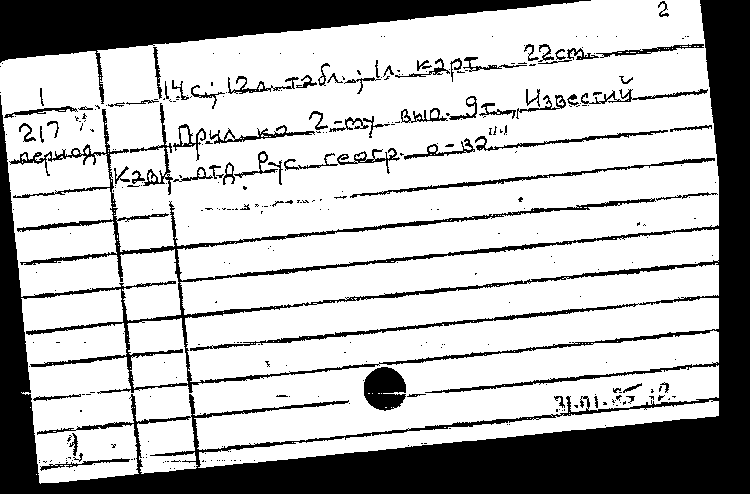 2
14 с.; 12 л. табл.; 1 л. карт. 22 cm.
1
217 ч.
период.
„Прил. ко 2-му вып. 9 т. „Известий
Кавк. отд. Рус. геогр. о-ва""
31.01.85
2